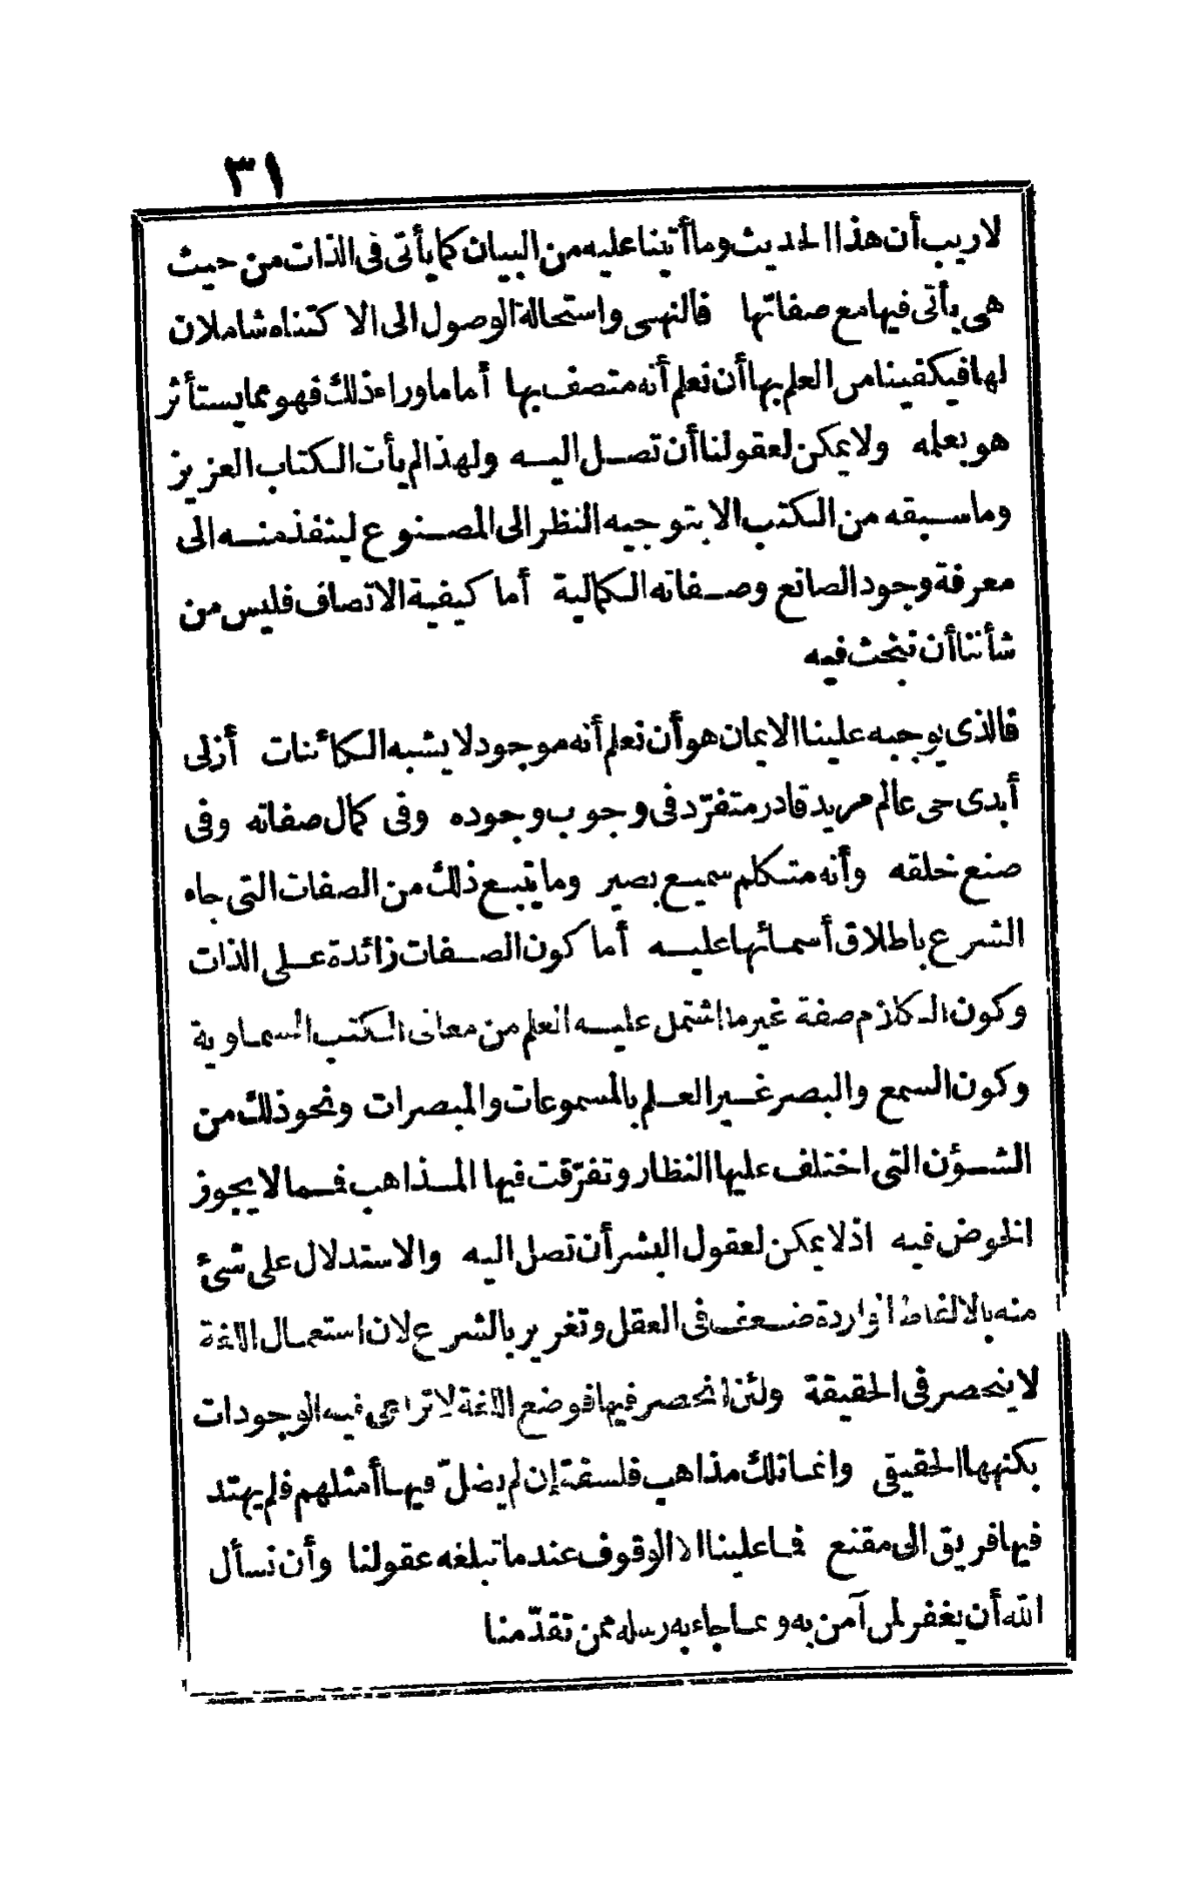 ٣١
لا ريب أن هذا الحديث وما أتينا عليه من البيان كما يأتى فى الذات من حيث
هى يأتى فيها مع صفاتها فالنهى واستحالة الوصول الى الاكتناه شاملان
لها فيكفينا من العلم بها أن نعلم أنه متصف بها أما ما وراء ذلك فهو مما يستأثر
هو بعلمه ولا يمكن لعقولنا أن تصل اليه ولهذا لم يأت الكتاب العزيز
وما سبقه من الكتب الا بتوجيه النظر الى المصنوع لينفذ منه الى
معرفة وجود الصانع وصفاته الكمالية أما كيفية الاتصاف فليس من
شأننا أن نبحث فيه
فالذى يوجبه علينا الايمان هو أن نعلم أنه موجود لا يشبه الكائنات أزلى
أبدى حى عالم مريد قادر متفرّد فى وجوب وجوده وفى كمال صفاته وفى
صنع خلقه وأنه متكلم سميع بصير وما يتبع ذلك من الصفات التى جاء
الشرع باطلاق أسمائها عليه أما كون الصفات زائدة على الذات
وكون الكلام صفة غير ما اشتمل عليه العلم من معانى الكتب السماوية
وكون السمع والبصر غير العلم بالمسموعات والمبصرات ونحو ذلك من
الشؤن التى اختلف عليها النظار وتفرّقت فيها المذاهب فمما لا يجوز
الخوض فيه اذ لا يمكن لعقول البشر أن تصل اليه والاستدلال على شئ
منه بالالفاظ الواردة ضعف فى العقل وتغرير بالشرع لان استعمال اللغة
لا ينحصر فى الحقيقة ولئن انحصر فيها فوضع اللغة لا تراعى فيه الوجودات
بكنهها الحقيقى وانما تلك مذاهب فلسفة إن لم يضلّ فيها أمثلهم فلم يهتد
فيها فريق الى مقنع فما علينا الا الوقوف عندما تبلغه عقولنا وأن نسأل
الله أن يغفر لمن آمن به وبما جاء به رسله ممن تقدّمنا